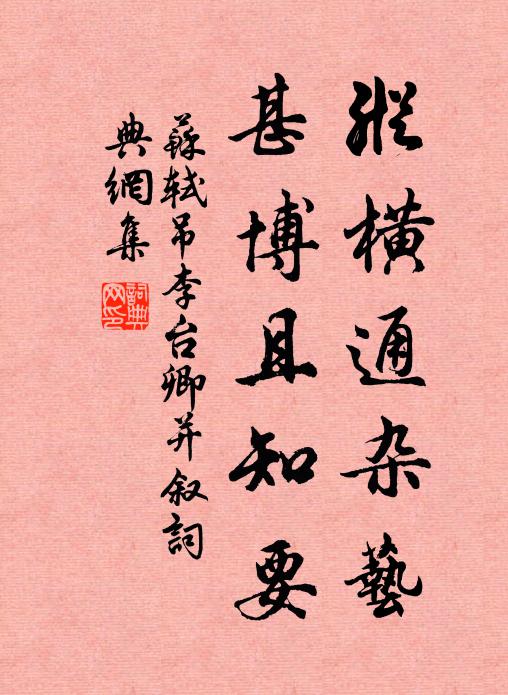 縱橫通杂藝
甚博且知要
蘇軾吊李台卿并叙詞
典網集
詞典网印